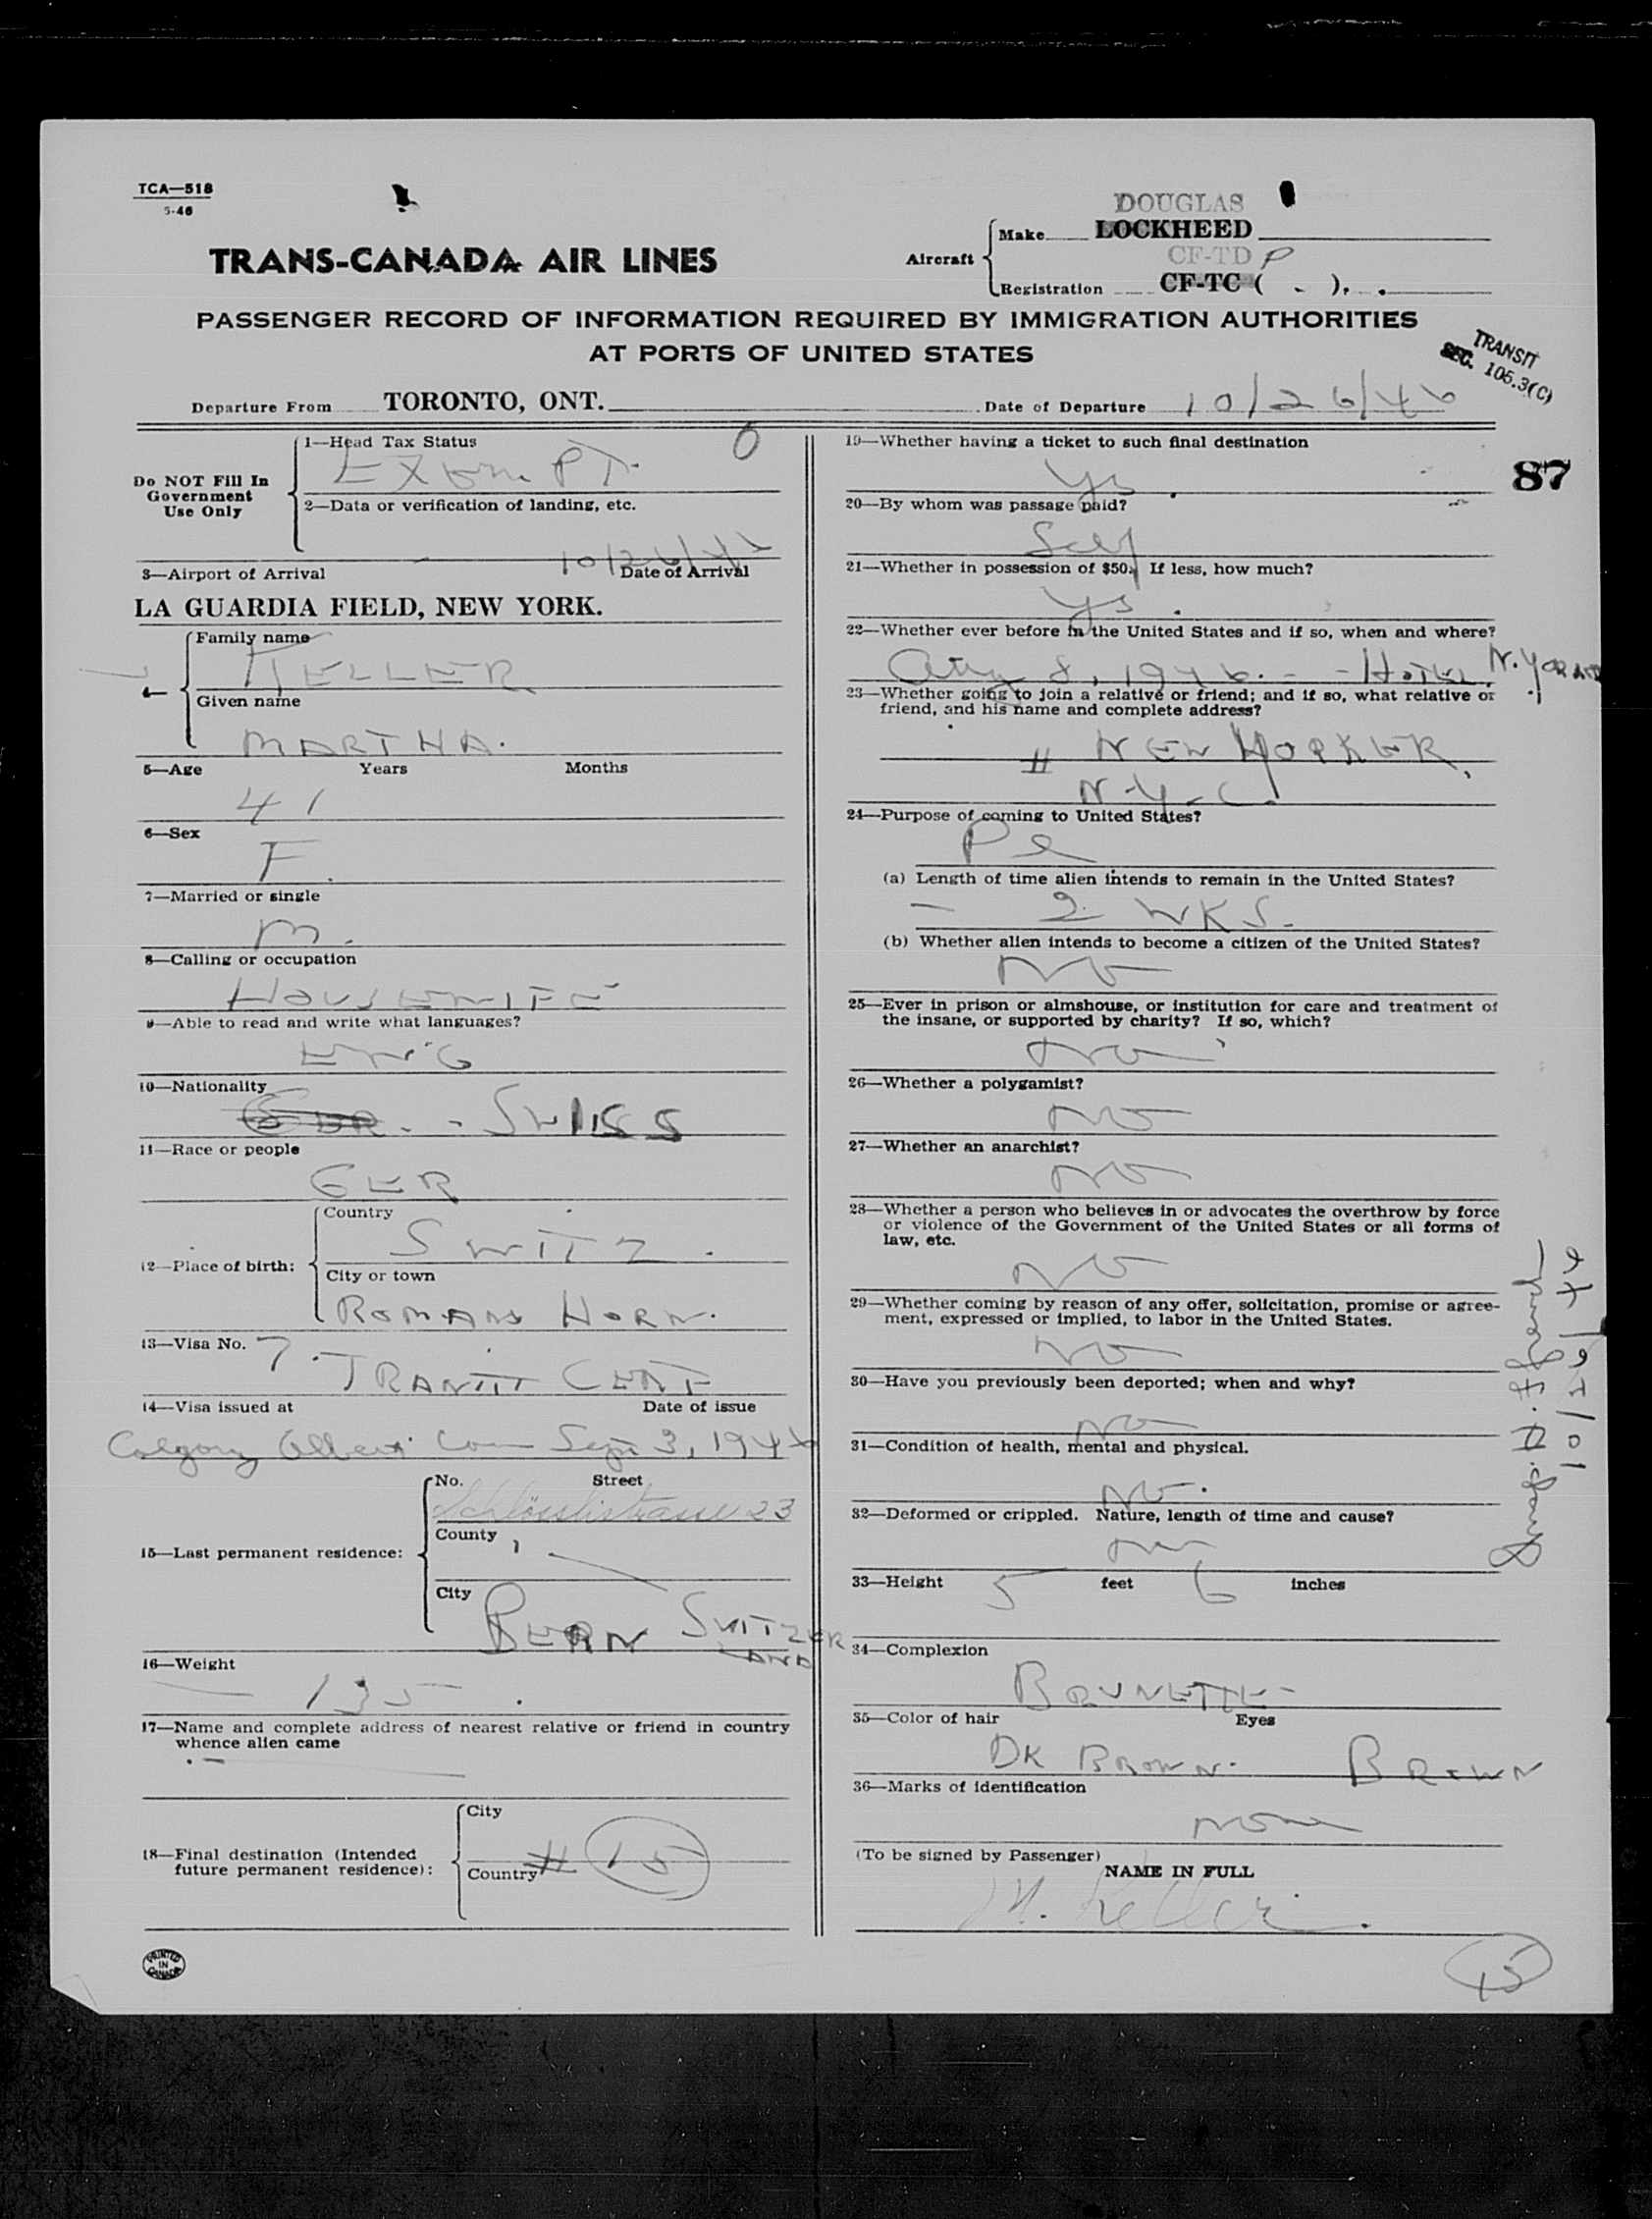 TCA—518
5-46
DOUGLAS
Make LOCKHEED
TRANS-CANADA AIR LINES
Aircraft
CF-TD P
Registration CF-TC ( - ). .
PASSENGER RECORD OF INFORMATION REQUIRED BY IMMIGRATION AUTHORITIES
AT PORTS OF UNITED STATES
TRANSIT
SEC. 105.3(C)
Departure From TORONTO, ONT.
Date of Departure 10/26/46
Do NOT Fill In
Government
Use Only
1—Head Tax Status
0
EXEMPT.
2—Data or verification of landing, etc.
10/26/46
3—Airport of Arrival Date of Arrival
LA GUARDIA FIELD, NEW YORK.
Family name
KELLER
4—
Given name
MARTHA.
5—Age Years Months
41
6—Sex
F.
7—Married or single
M.
8—Calling or occupation
HOUSEWIFE
9—Able to read and write what languages?
ENG
10—Nationality
GER. - SWISS
11—Race or people
GER
12—Place of birth:
Country
SWITZ.
City or town
ROMANS HORN.
13—Visa No. 7.
TRANSIT CERT
14—Visa issued at Date of issue
Calgary Alberta Can Sept 3, 1946
15—Last permanent residence:
No. Street
Schlösslistrasse 23
County
City
BERN SWITZER
LAND
16—Weight
135
17—Name and complete address of nearest relative or friend in country
whence alien came
18—Final destination (Intended
future permanent residence):
City
Country
# 15
PRINTED
IN
CANADA
19—Whether having a ticket to such final destination
Yes
87
20—By whom was passage paid?
Self
21—Whether in possession of $50. If less, how much?
Yes.
22—Whether ever before in the United States and if so, when and where?
Aug 8, 1946. - - Hotel N. Yorker
23—Whether going to join a relative or friend; and if so, what relative or
friend, and his name and complete address?
H NEW YORKER,
N.Y.C.
24—Purpose of coming to United States?
(a) Length of time alien intends to remain in the United States?
— 2 WKS.
(b) Whether alien intends to become a citizen of the United States?
No
25—Ever in prison or almshouse, or institution for care and treatment of
the insane, or supported by charity? If so, which?
No
26—Whether a polygamist?
No
27—Whether an anarchist?
No
28—Whether a person who believes in or advocates the overthrow by force
or violence of the Government of the United States or all forms of
law, etc.
No
29—Whether coming by reason of any offer, solicitation, promise or agree-
ment, expressed or implied, to labor in the United States.
No
30—Have you previously been deported; when and why?
No
31—Condition of health, mental and physical.
No.
32—Deformed or crippled. Nature, length of time and cause?
No
33—Height 5 feet 6 inches
34—Complexion
BRUNETTE
35—Color of hair Eyes
DK BROWN. BROWN
36—Marks of identification
None
(To be signed by Passenger)
NAME IN FULL
M. Keller.
15
10/26/46